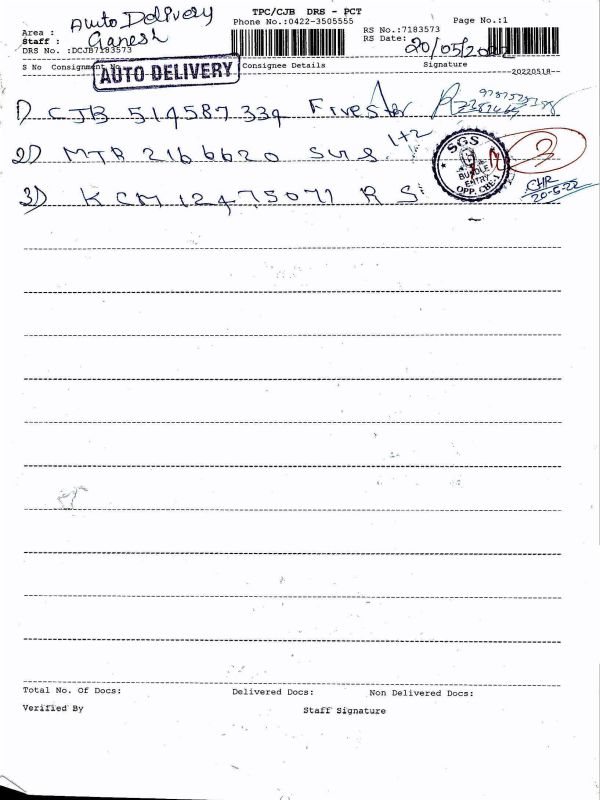 TPC/CJB DRS - PCT
Phone No.:0422-3505555
Page No.:1
Area : Auto Delivery
Staff : Ganesh
RS No.:7183573
DRS No. :DCJB7183573
RS Date: 20/05/2022
S No Consignment No
Consignee Details
Signature
AUTO DELIVERY
20220518
1) CJB 514587339 Fivestar
2) MTR 2166620 SUS 1+2
SGS
BUNDLE
ENTRY
OPP. CBE-1
3
3) KCM 12475071 R S
CHR
20-5-22
Total No. Of Docs:
Delivered Docs:
Non Delivered Docs:
Verified By
Staff Signature